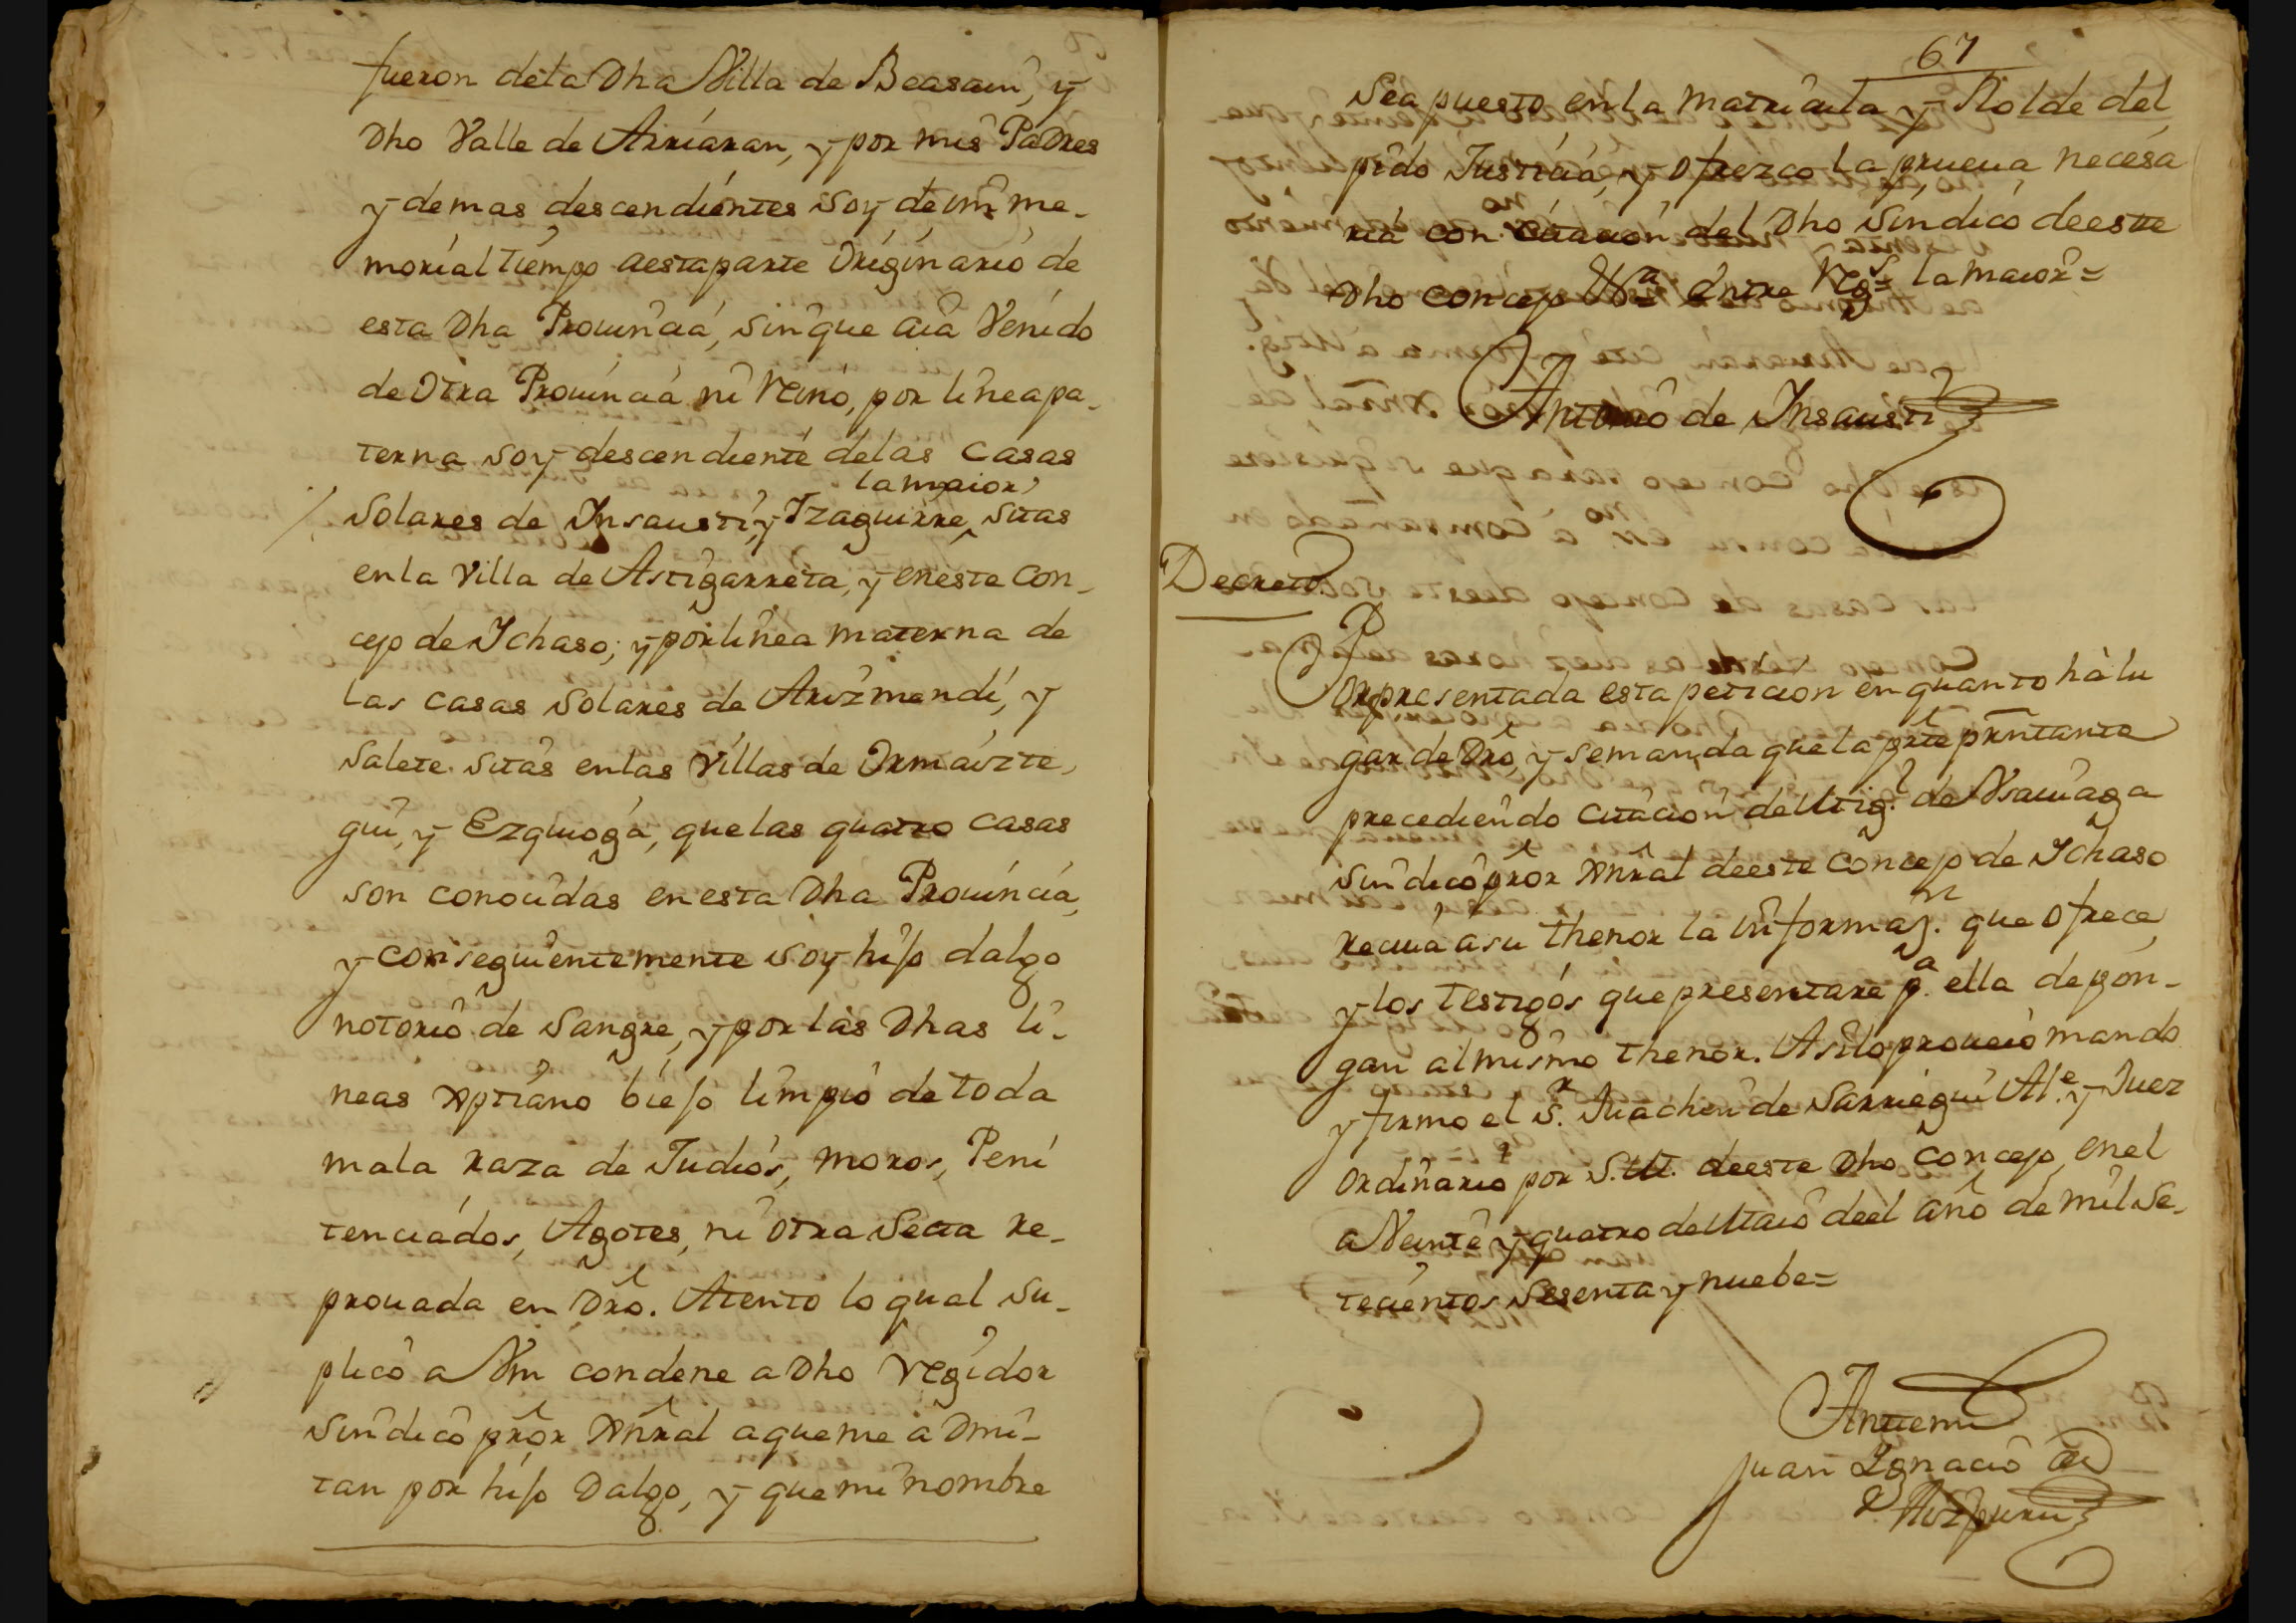 fueron dela Dha Villa de Beasain, y
Dho Valle de Arriaran, y por mis Padres
y demas descendientes soy de imme-
morial tiempo aesta parte Originario de
esta Dha Prouincia, sin que aia Venido
de Otra Prouincia ni Reino, por linea pa-
terna soy descendiente delas Casas
la maior
Solares de Insausti, y Izaguirre, sitas
en la Villa de Astigarreta, y en este Con-
cejo de Ichaso; y por linea materna de
las casas Solares de Arizmendi, y
Salete sitas en las Villas de Ormaizte-
gui, y Ezquioga, que las quatro casas
son conocidas en esta Dha Prouincia,
y consequientemente soy hijo dalgo
notorio de Sangre, y por las Dhas li-
neas Xptiano biejo limpio de toda
mala raza de Judios, moros, Peni
tenciados, Agotes, ni otra Secta re-
prouada en Dro. Atento lo qual Su-
plico a Vm condene a Dho Regidor
Sindico pror Xnral a que me aDmi-
tan por hijo Dalgo, y que mi nombre
67
Sea puesto en la matricula y Rolde del
pido Justicia, y Ofrezco la prueua necesa
ria con citacion del Dho Sindico de este
Dho concejo Va entre Regs la maior=
Antonio de Insausti
Decreto.
Por presentada esta peticion en quanto hà lu
gar de Dro, y se manda que la pte prntante
precediendo citacion de Mig.l de Vsauiaga
Sindico pror Xnral de este Concejo de Ichaso
reciua a su thenor la informaz.n que Ofrece,
y los testigos que presentare p.a ella depon-
gan al mismo thenor. Asilo proueió mando
y firmo el S.r Juachin de Sarriegui Al.e y Juez
Ordinario por S.M. de este Dho Concejo, en el
a Veinte y quatro de Maio de el año de mil Se-
tecientos Sesenta y nuebe=
Antemi
Juan Ignacio de
Aizpuru